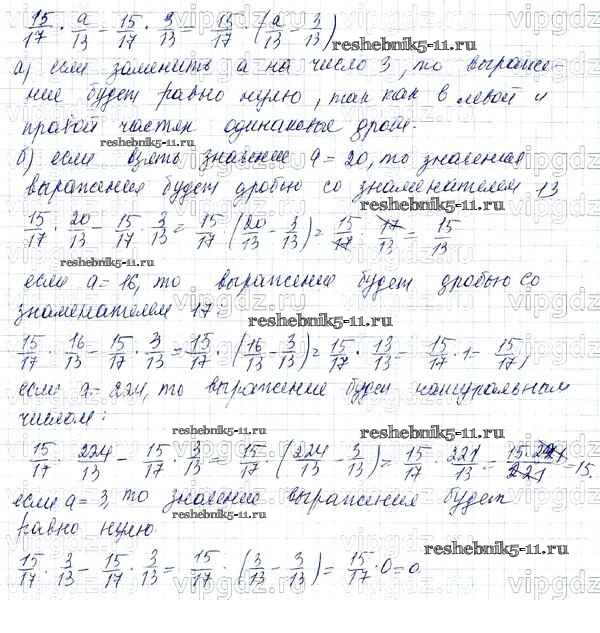 15/17 · a/13 - 15/17 · 3/13 = 15/17 · (a/13 - 3/13)
reshebnik5-11.ru
а) если заменить a на число 3, то выраже-
ние будет равно нулю, так как в левой и
правой частях одинаковое дроби.
reshebnik5-11.ru
б) если взять значение a = 20, то значения
выражения будет дробью со знаменателем 13
15/17 · 20/13 - 15/17 · 3/13 = 15/17 (20/13 - 3/13) = 15/17 · 17/13 = 15/13
если a = 16, то выражение будет дробью со
знаменателем 17:
reshebnik5-11.ru
15/17 · 16/13 - 15/17 · 3/13 = 15/17 · (16/13 - 3/13) = 15/17 · 13/13 = 15/17 · 1 = 15/17,
если a = 224, то выражение будет натуральным
числом:
reshebnik5-11.ru
15/17 · 224/13 - 15/17 · 3/13 = 15/17 (224/13 - 3/13) = 15/17 · 221/13 = 15·221/221 = 15.
если a = 3, то значение выражения будет
reshebnik5-11.ru
равно нулю
reshebnik5-11.ru
15/17 · 3/13 - 15/17 · 3/13 = 15/17 · (3/13 - 3/13) = 15/17 · 0 = 0
vipgdz.ru